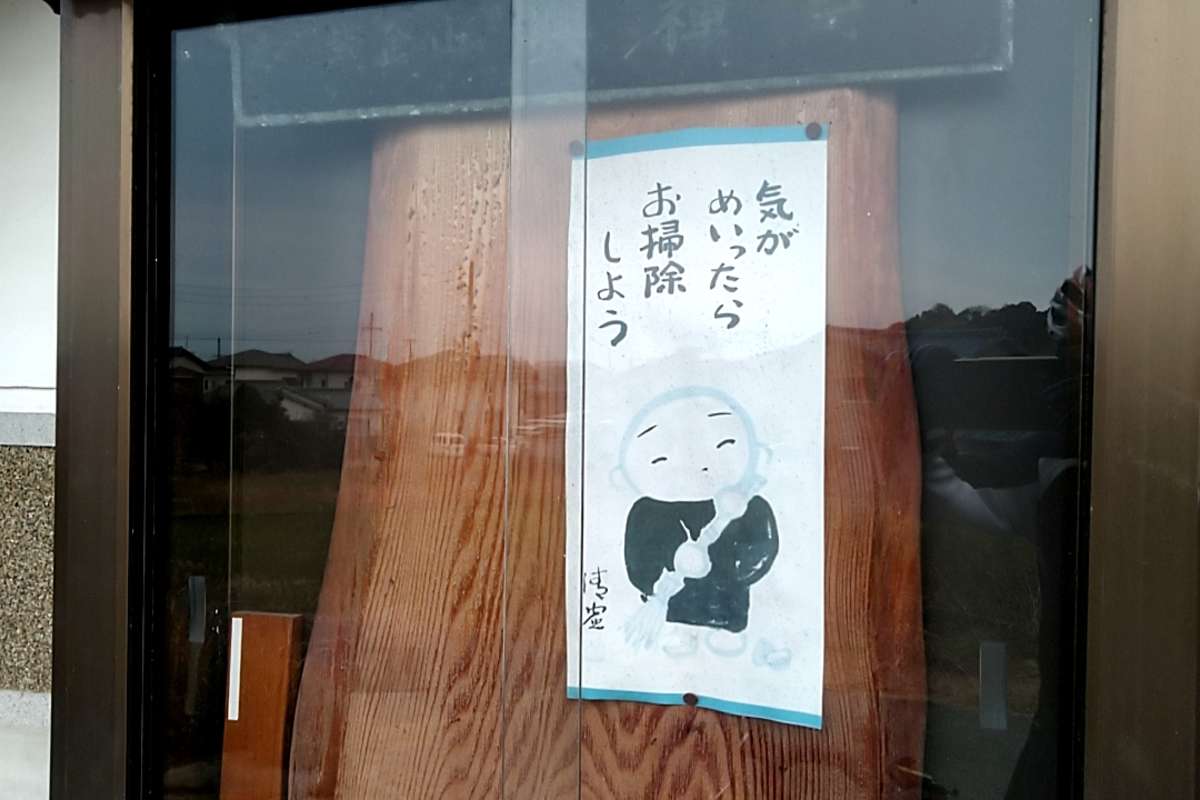 気が
めいったら
お掃除
しよう